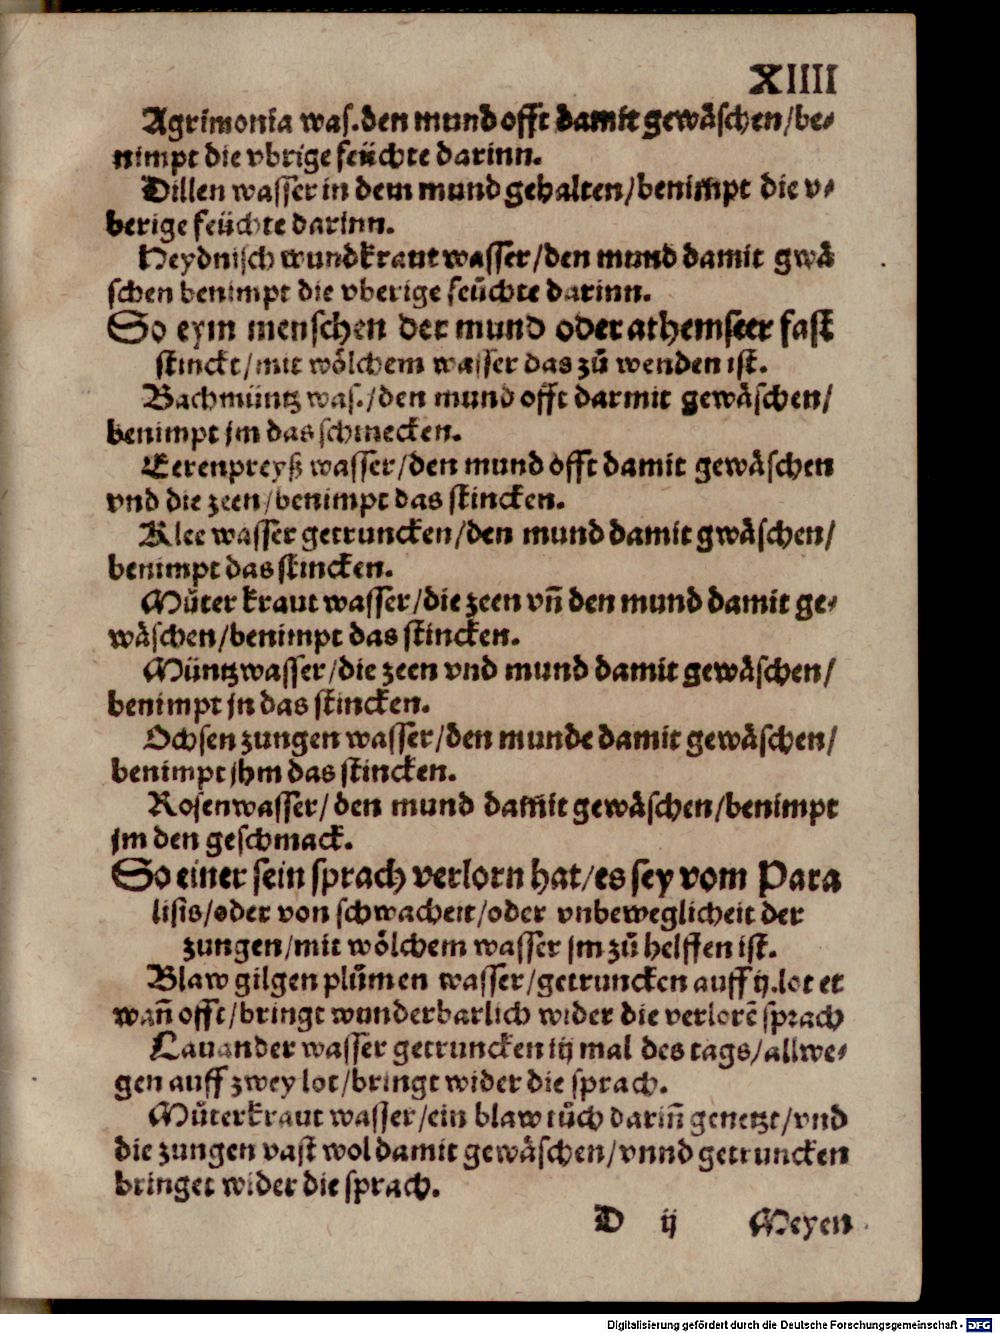 XIIII
Agrimonia was. den mund offt damit gewåschen/be⸗
nimpt die vbrige feüchte darinn.
Dillen wasser in dem mund gehalten/benimpt die v⸗
berige feüchte darinn.
Heydnisch wundkraut wasser/den mund damit gwå
schen benimpt die vberige feüchte darinn.
So eym menschen der mund oder athem seer fast
stinckt/mit wölchem wasser das zů wenden ist.
Bachmüntz was./den mund offt darmit gewåschen/
benimpt jm das schmecken.
Eerenpreyß wasser/den mund offt damit gewåschen
vnd die zeen/benimpt das stincken.
Klee wasser getruncken/den mund damit gwåschen/
benimpt das stincken.
Můter kraut wasser/die zeen vñ den mund damit ge⸗
wåschen/benimpt das stincken.
Müntzwasser/die zeen vnd mund damit gewåschen/
benimpt jn das stincken.
Ochsen zungen wasser/den munde damit gewåschen/
benimpt jhm das stincken.
Rosenwasser/den mund damit gewåschen/benimpt
jm den geschmack.
So einer sein sprach verlorn hat/es sey vom Para
lisis/oder von schwacheit/oder vnbeweglicheit der
zungen/mit wölchem wasser jm zů helffen ist.
Blaw gilgen plůmen wasser/getruncken auff ij. lot et
wañ offt/bringt wunderbarlich wider die verlorē sprach
Lauander wasser getruncken iij mal des tags/allwe⸗
gen auff zwey lot/bringt wider die sprach.
Můterkraut wasser/ein blaw tůch dariñ genetzt/vnd
die zungen vast wol damit gewåschen/vnnd getruncken
bringet wider die sprach.
D ij Meyen
Digitalisierung gefördert durch die Deutsche Forschungsgemeinschaft - DFG